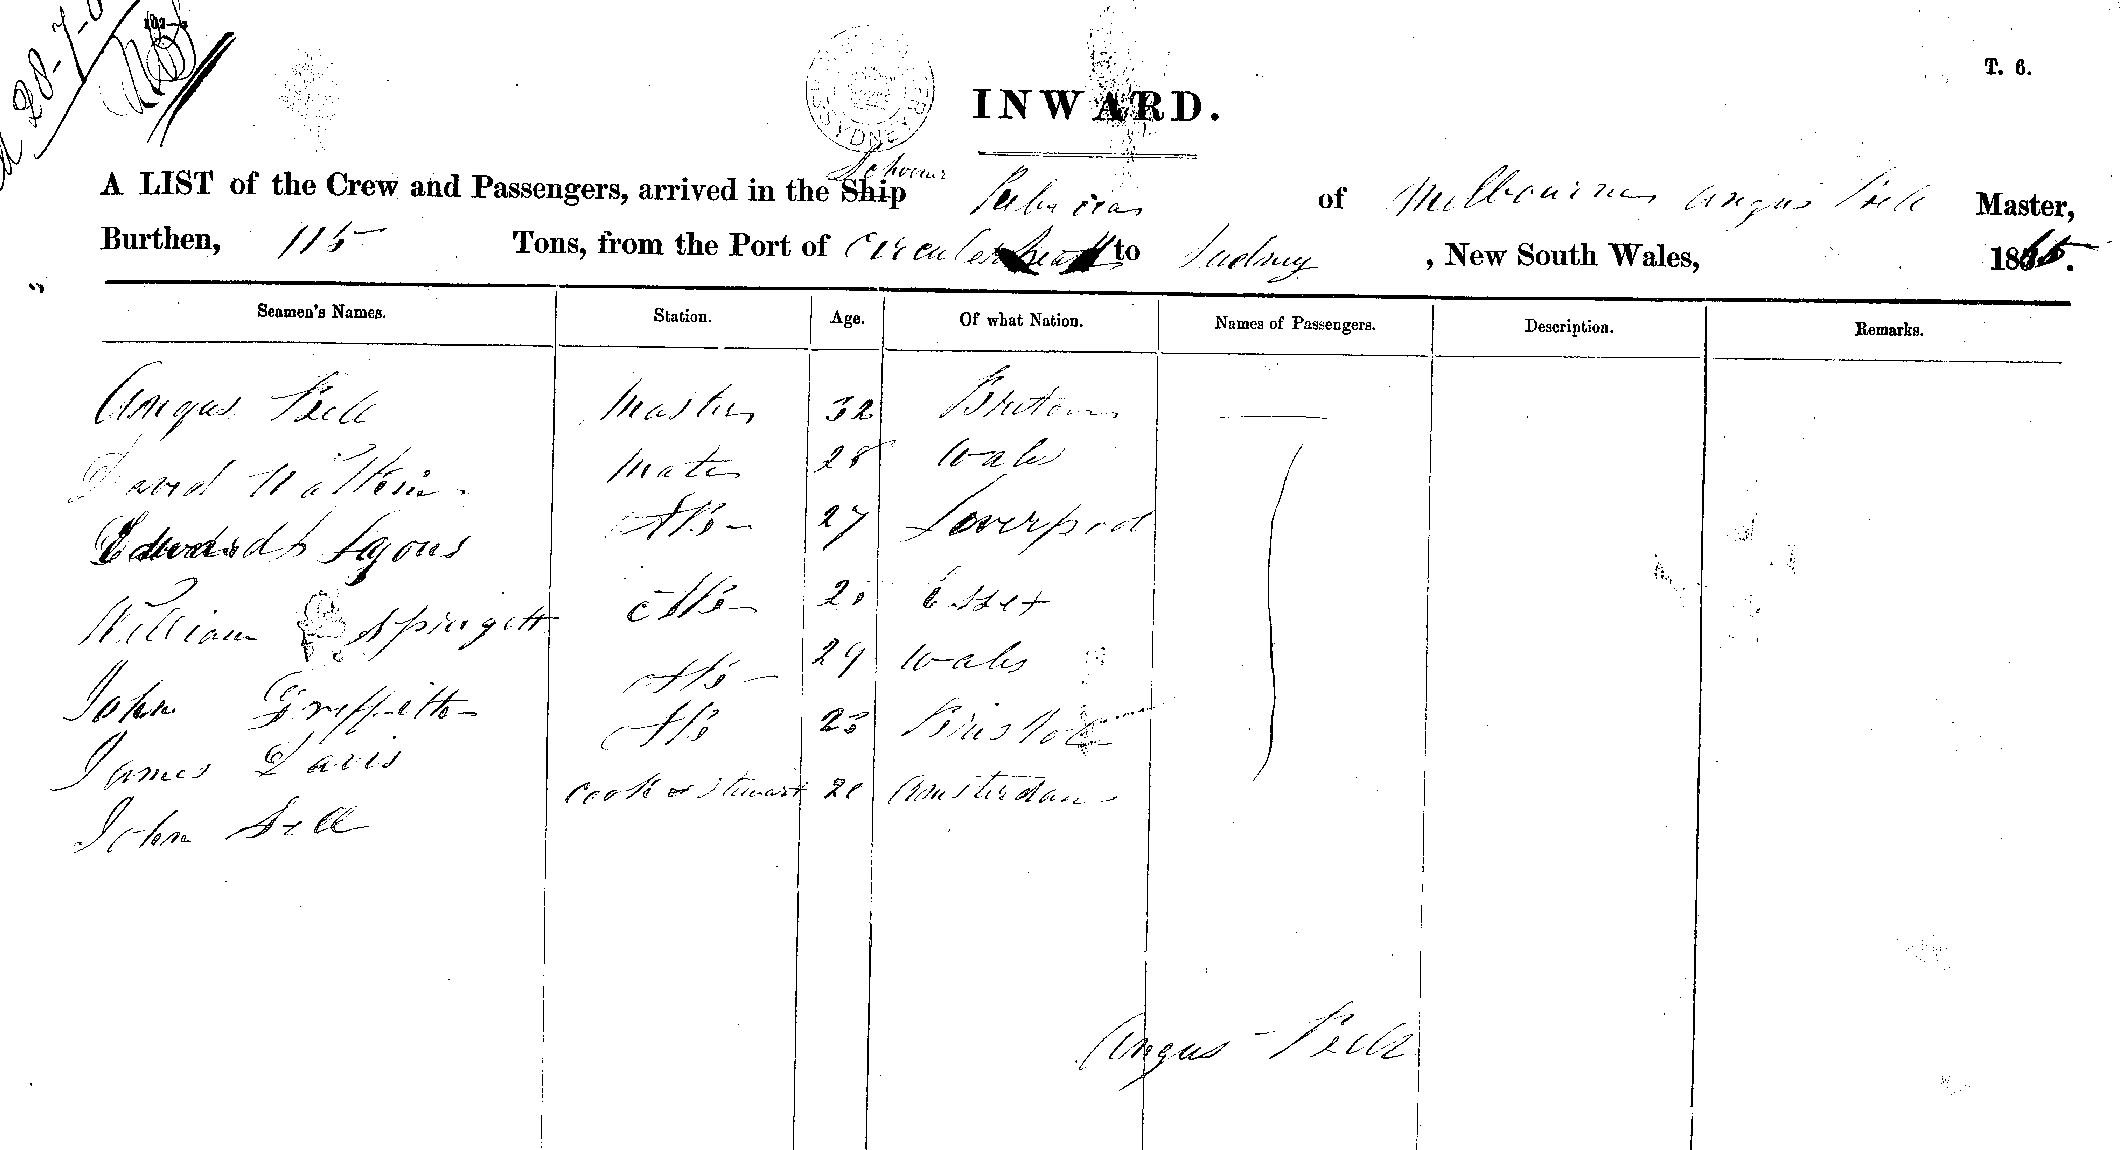 28-7-
T. 6.
SYDNEY
INWARD.
Schooner
A LIST of the Crew and Passengers, arrived in the Ship of Melbourne Angus Bell Master,
Burthen, 115 Tons, from the Port of Circular Head to Sudney , New South Wales, 1865.
Seamen's Names. Station. Age. Of what Nation. Names of Passengers. Description. Remarks.
Angus Bell Master 32 Britain
David Watkin Mate 28 Wales
Edward Lyons AB 27 Leverpool
William Springett AB Essex
John Griffiths AB 29 Wales
James Davis AB 23 Bristol
John Amsterdam
Cook & Stewart
Angus Bell